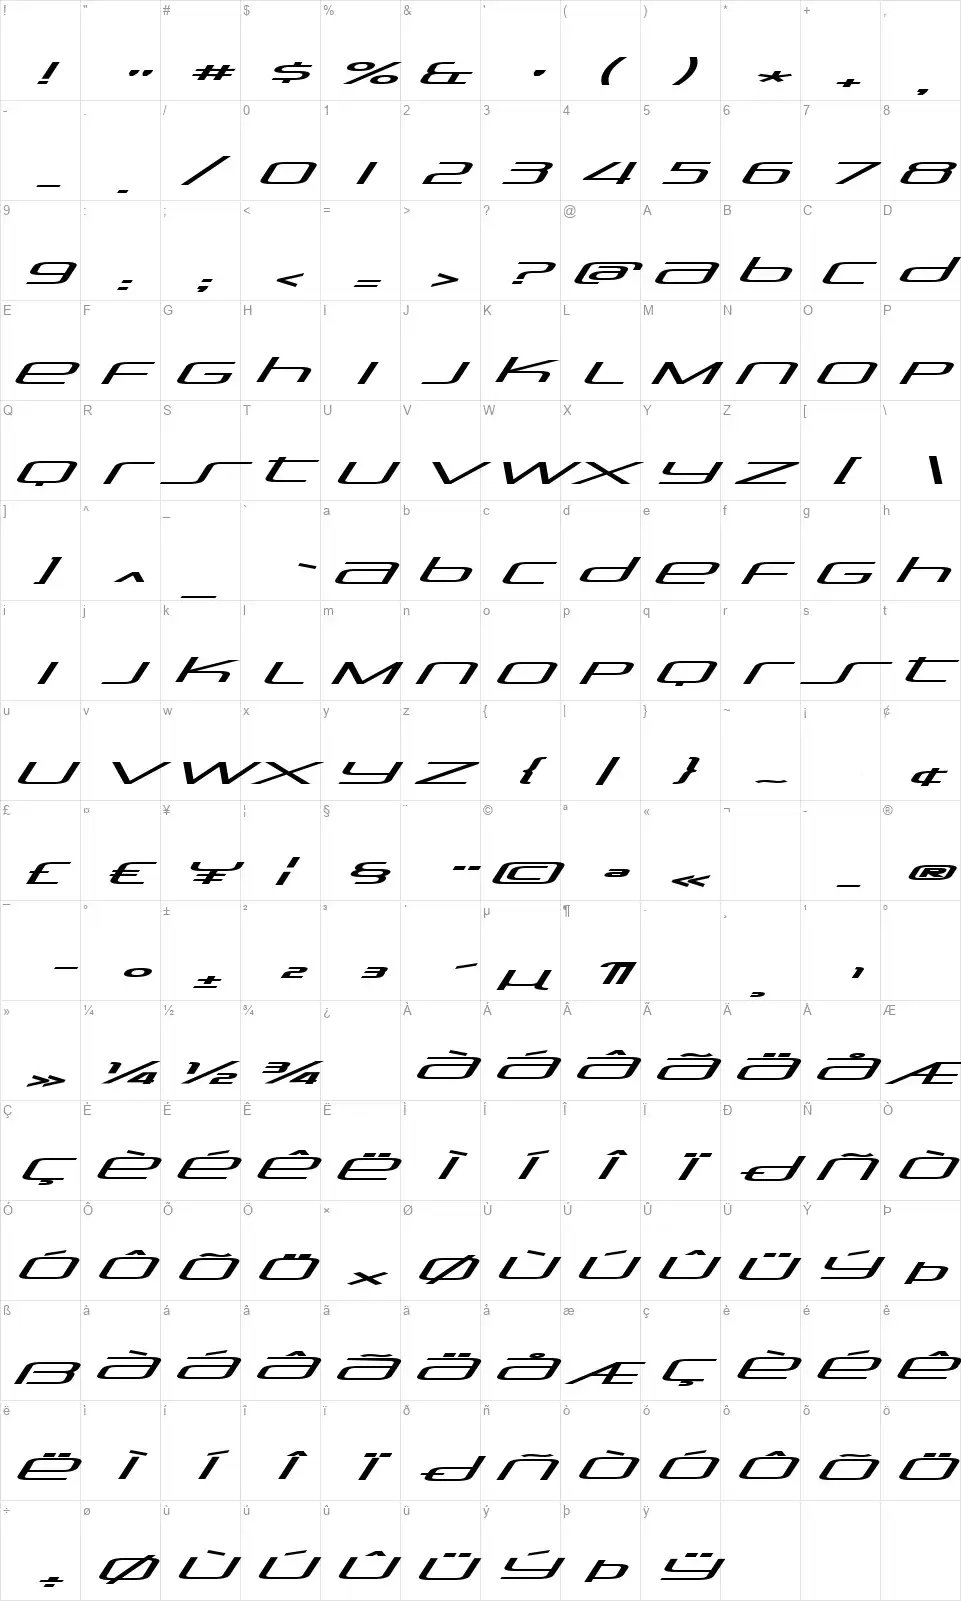 ! " # $ % & ' ( ) * + ,
! " # $ % & ' ( ) * + ,
- . / 0 1 2 3 4 5 6 7 8
- . / 0 1 2 3 4 5 6 7 8
9 : ; < = > ? @ A B C D
9 : ; < = > ? @ a b c d
E F G H I J K L M N O P
e F G h I J K L M n O P
Q R S T U V W X Y Z [ \
Q r s t U V W X y Z [ \
] ^ _ ` a b c d e f g h
] ^ _ ` a b c d e F G h
i j k l m n o p q r s t
I J K L M n O P Q r s t
u v w x y z { | } ~ ¡ ¢
U V W X y Z { | } ~ ¢
£ ¤ ¥ ¦ § ¨ © ª « ¬ - ®
£ € ¥ ¦ § ¨ © ª « - ®
¯ ° ± ² ³ ´ µ ¶ · ¸ ¹ º
¯ ° ± ² ³ ´ µ ¶ ¸ ¹
» ¼ ½ ¾ ¿ À Á Â Ã Ä Å Æ
» ¼ ½ ¾ à á â ã ä å Æ
Ç È É Ê Ë Ì Í Î Ï Ð Ñ Ò
Ç è é ê ë Ì Í Î Ï đ ñ Ò
Ó Ô Õ Ö × Ø Ù Ú Û Ü Ý Þ
Ó Ô Õ Ö × Ø Ù Ú Û Ü ý þ
ß à á â ã ä å æ ç è é ê
B à á â ã ä å Æ Ç è é ê
ë ì í î ï ð ñ ò ó ô õ ö
ë Ì Í Î Ï đ ñ Ò Ó Ô Õ Ö
÷ ø ù ú û ü ý þ ÿ
÷ Ø Ù Ú Û Ü ý þ ÿ